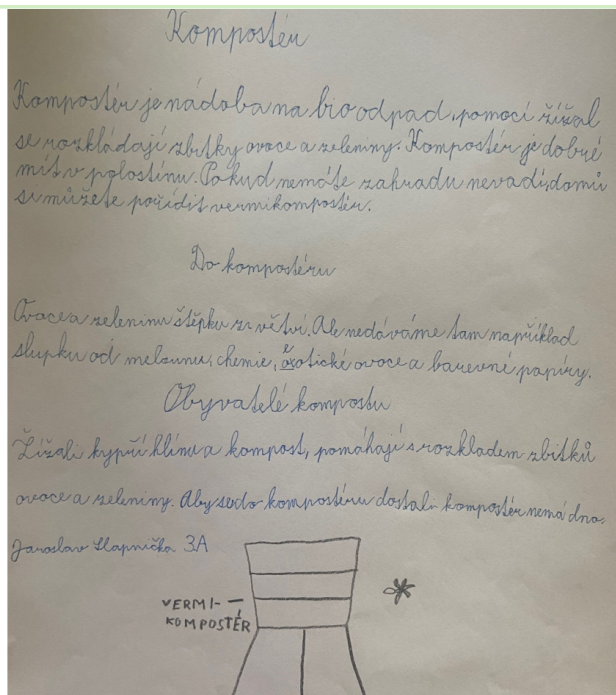 Kompostér
Kompostér je nádoba na bioodpad, pomocí žížal
se rozkládají zbitky ovoce a zeleniny. Kompostér je dobré
mít v polostínu. Pokud nemáte zahradu nevadí, domů
si můžete pořídit vermikompostér.
Do kompostéru
Ovoce a zeleninu štěpku z větví. Ale nedáváme tam například
slupku od melounu, chemie, exotické ovoce a barevné papíry.
Obyvatelé kompostu
Žížali kypří hlínu a kompost, pomáhají s rozkladem zbitků
ovoce a zeleniny. Aby se do kompostéru dostali kompostér nemá dno.
Jaroslav Slapnička 3A
VERMI-
KOMPOSTÉR